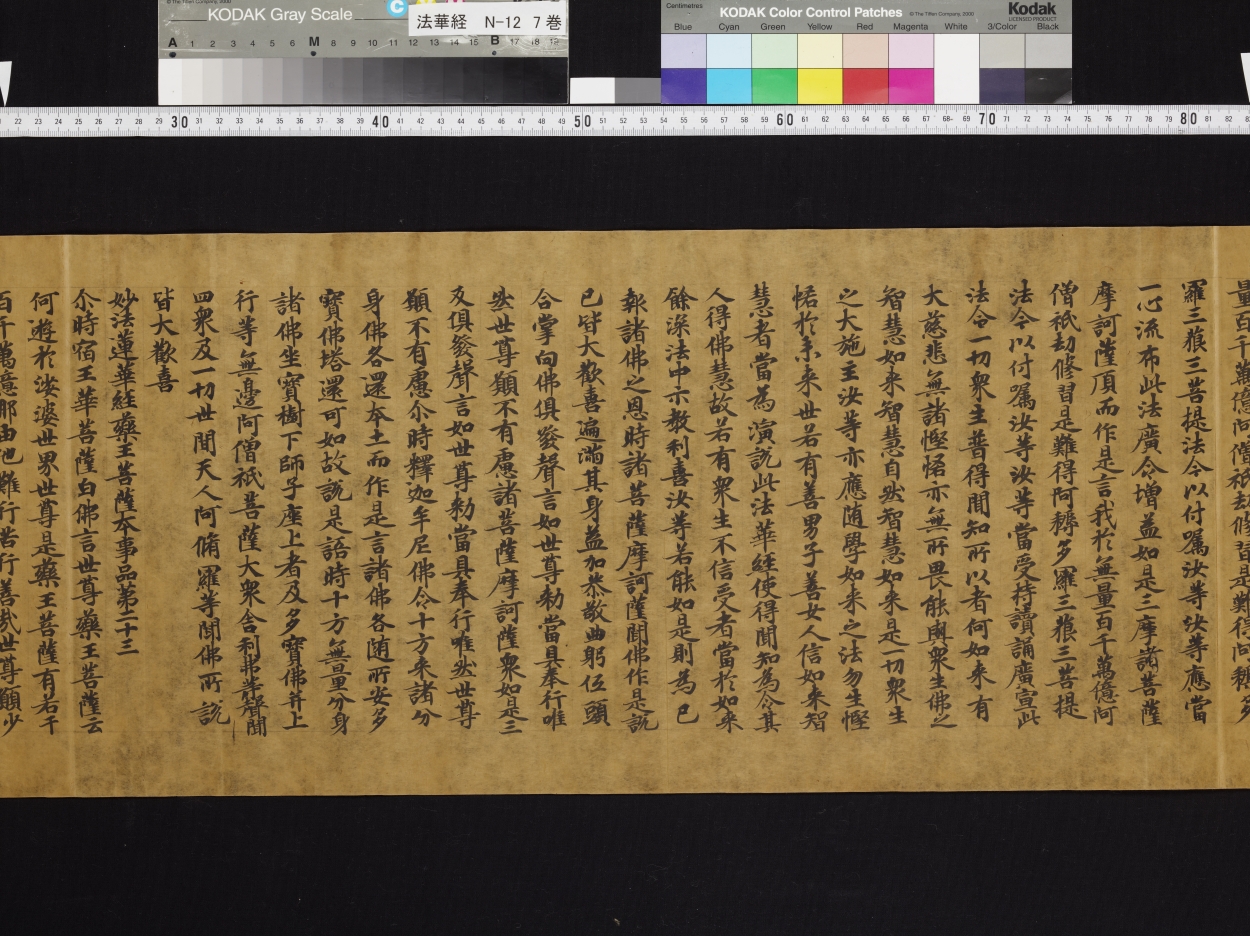 © The Tiffen Company, 2000
KODAK Gray Scale
C
法華経 N-12 7巻
A 1 2 3 4 5 6 M 8 9 10 11 12 13 14 15 B 17 18 19
Centimetres
KODAK Color Control Patches © The Tiffen Company, 2000
Kodak
LICENSED PRODUCT
Blue Cyan Green Yellow Red Magenta White 3/Color Black
22 23 24 25 26 27 28 29 30 31 32 33 34 35 36 37 38 39 40 41 42 43 44 45 46 47 48 49 50 51 52 53 54 55 56 57 58 59 60 61 62 63 64 65 66 67 68 69 70 71 72 73 74 75 76 77 78 79 80 81 82
量百千萬億阿僧祇劫修習是難得阿耨多
羅三藐三菩提法今以付囑汝等汝等應當
一心流布此法廣令增益如是三摩諸菩薩
摩訶薩頂而作是言我於無量百千萬億阿
僧祇劫修習是難得阿耨多羅三藐三菩提
法今以付囑汝等汝等當受持讀誦廣宣此
法令一切衆生普得聞知所以者何如来有
大慈悲無諸慳悋亦無所畏能與衆生佛之
智慧如来智慧自然智慧如来是一切衆生
之大施主汝等亦應随學如来之法勿生慳
悋於未来世若有善男子善女人信如来智
慧者當為演説此法華經使得聞知為令其
人得佛慧故若有衆生不信受者當於如来
餘深法中示教利喜汝等若能如是則為已
報諸佛之恩時諸菩薩摩訶薩聞佛作是説
已皆大歡喜遍滿其身益加恭敬曲躬伍頭
合掌向佛俱發聲言如世尊勅當具奉行唯
然世尊願不有慮諸菩薩摩訶薩衆如是三
反俱發聲言如世尊勅當具奉行唯然世尊
願不有慮尒時釋迦牟尼佛令十方来諸分
身佛各還本土而作是言諸佛各随所安多
寶佛塔還可如故説是語時十方無量分身
諸佛坐寶樹下師子座上者及多寶佛并上
行等無邊阿僧祇菩薩大衆舎利弗等聲聞
四衆及一切世間天人阿脩羅等聞佛所説
皆大歡喜
妙法蓮華經藥王菩薩本事品第二十三
尒時宿王華菩薩白佛言世尊藥王菩薩云
何遊於娑婆世界世尊是藥王菩薩有若干
百千萬億那由他難行苦行善哉世尊願少